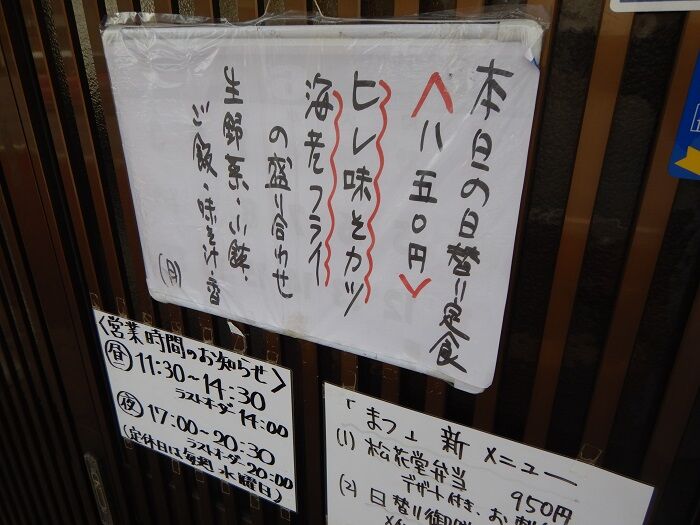 本日の日替り定食
〈八五〇円〉
ヒレ味そカツ
海老フライ
の盛り合わせ
生野菜・小鉢、
ご飯・味そ汁・香
(月)
〈営業時間のお知らせ〉
昼 11:30~14:30
ラストオーダー 14:00
夜 17:00~20:30
ラストオーダー 20:00
(定休日は毎週水曜日)
「まつ」新メニュー
(1) 松花堂弁当 950円
デザート付き、お
(2) 日替り御